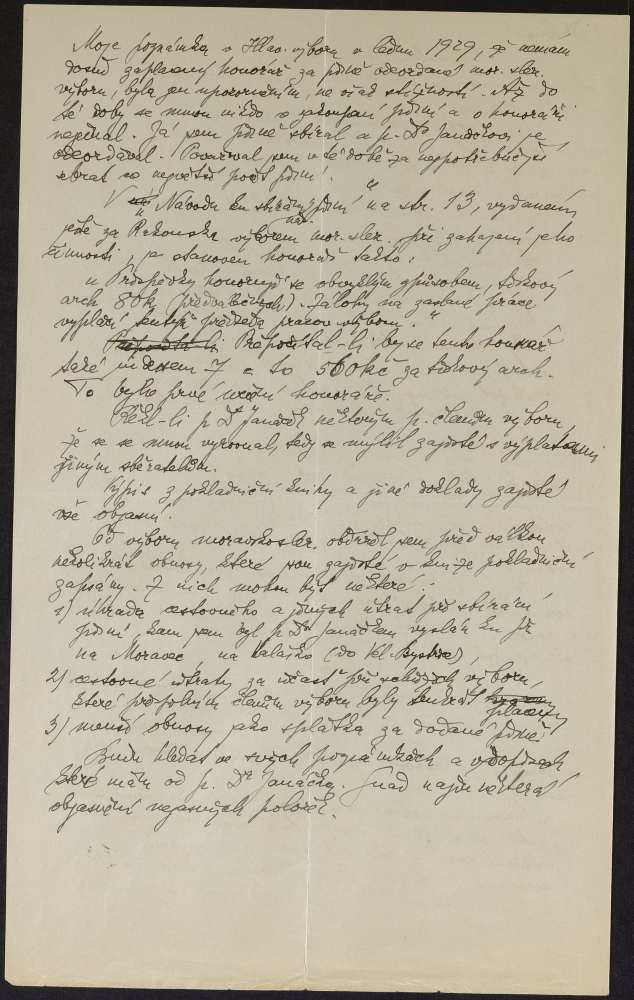 Moje poznámka v Hlav. výboru v lednu 1929, že nemám
dosud zaplacený honorář za písně odevzdané mor. slez.
výboru, byla jen upozorněním, ne však stížností. Až do
té doby se mnou nikdo o písní a o honoráři
nejednal. Já jsem písně sbíral a p. Dr Janáčkovi je
odevzdával. Považoval jsem v té době za nejpotřebnější
sebrat co největší počet písní.
V „Návodu ku sbírání písní“ na str. 13, vydaném
ještě za Rakouska výborem mor. slez. při zahájení jeho
činnosti, je stanoven honorář takto:
„Příspěvky honorují se obvyklým způsobem, tiskový
arch 80 k (předválečných). Zálohy na zaslané práce
vyplácí tentýž předseda pracov. výboru.“
Přepočítal-li by se tento honorář
také indexem 7 = to 560 kč za tiskový arch.
To bylo prvé znění honoráře.
Řekl-li p. Dr Janáček některým p. členům výboru,
že se se mnou vyrovnal, tedy se mýlil zajisté s výplatami
jiným sběratelům.
Výpis z pokladniční knihy a jiné doklady zajisté
vše objasní.
Od výboru moravskoslez. obdržel jsem před válkou
několikrát obnosy, které jsou zajisté v knize pokladniční
zapsány. Z nich mohou být některé:
1) úhrada cestovného a jiných útrat při sbírání
písní, kam jsem byl p. Dr Janáčkem vyslán ku př.
na Moravě na Valašsko (do Vel. Bystřice),
2) cestovné útraty za účast při schůzích výboru,
které přespolním členům výboru byly tenkrát placeny
3) menší obnosy jako splátka za dodané písně.
Budu hledat ve svých poznámkách a v dopisech
které mám od p. Dr Janáčka. Snad najdu některá
objasnění nejasných položek.